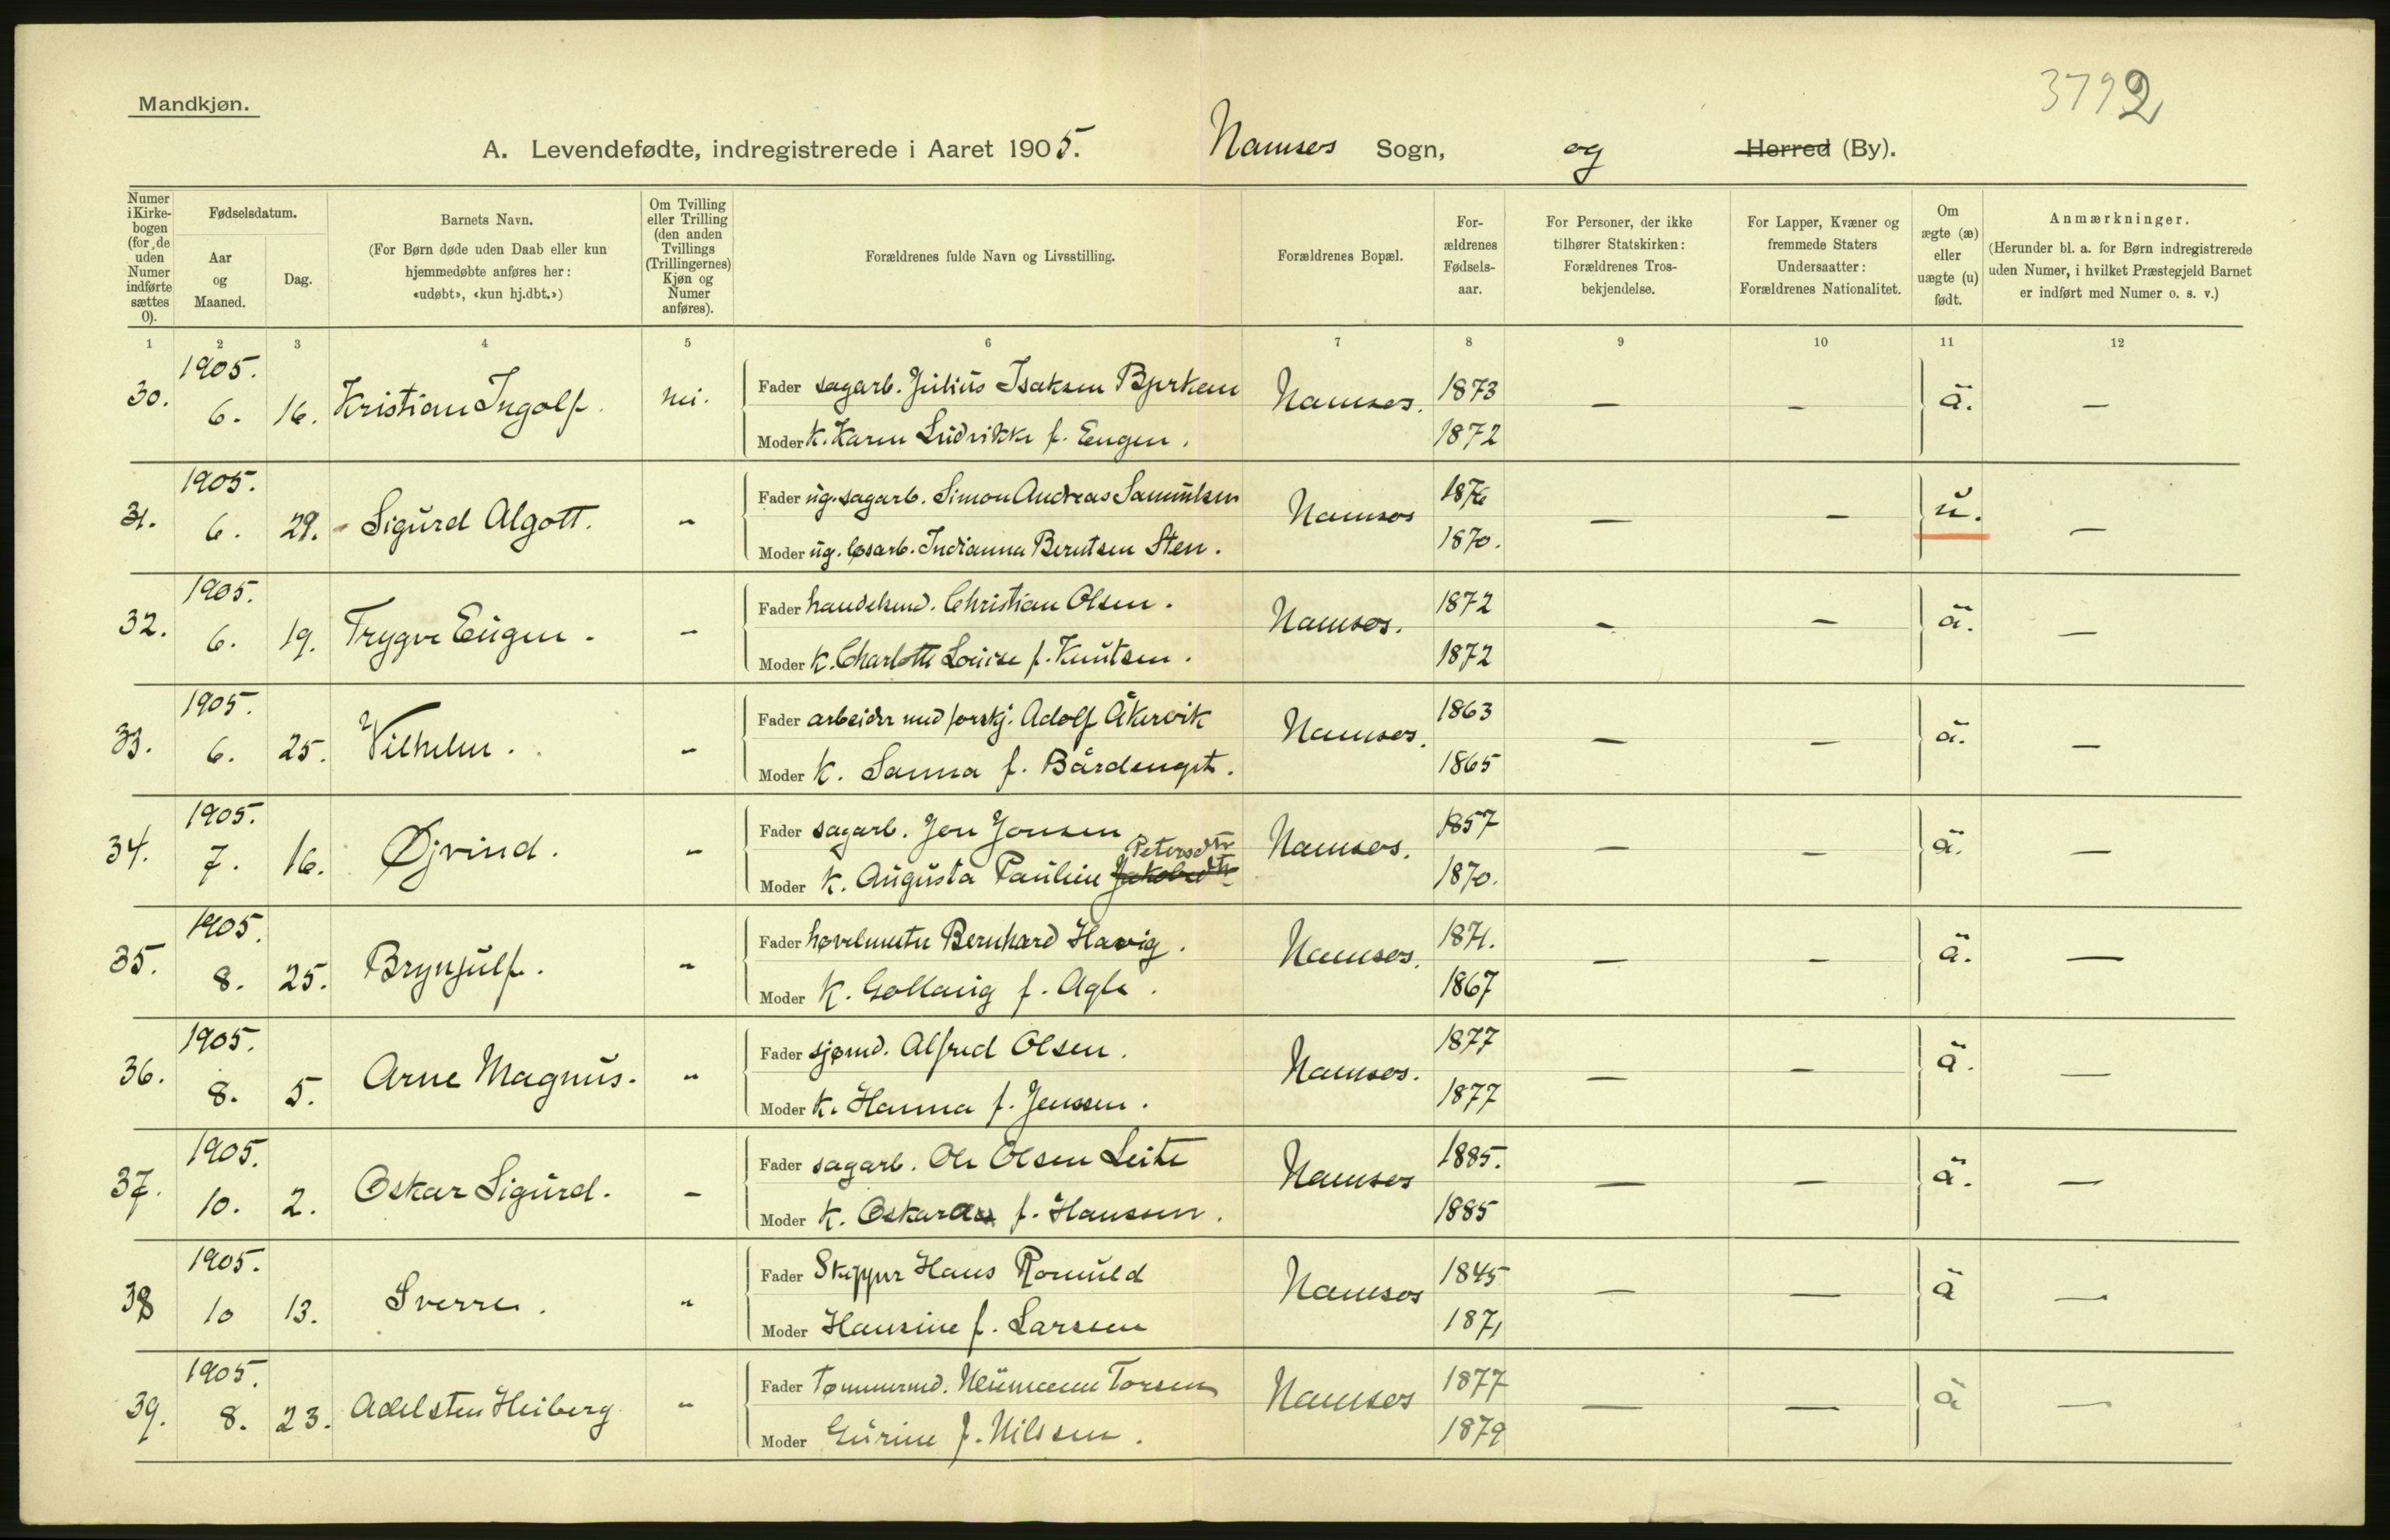 3792
Mandkjøn.
A. Levendefødte, indregistrerede i Aaret 1905. Namsos Sogn, og Herred (By).
Numer i Kirkebogen (for de uden Numer indførte sættes 0).
Fødselsdatum.
Aar og Maaned.
Dag.
Barnets Navn.
(For Børn døde uden Daab eller kun hjemmedøbte anføres her: «udøbt», «kun hj.dbt.»)
Om Tvilling eller Trilling (den anden Tvillings (Trillingernes) Kjøn og Numer anføres).
Forældrenes fulde Navn og Livsstilling.
Forældrenes Bopæl.
For-ældrenes Fødsels-aar.
For Personer, der ikke tilhører Statskirken: Forældrenes Tros-bekjendelse.
For Lapper, Kvæner og fremmede Staters Undersaatter: Forældrenes Nationalitet.
Om ægte (æ) eller uægte (u) født.
Anmærkninger.
(Herunder bl. a. for Børn indregistrerede uden Numer, i hvilket Præstegjeld Barnet er indført med Numer o. s. v.)
1 2 3 4 5 6 7 8 9 10 11 12
30. 1905. 6. 16. Kristian Ingolf. nei. Fader sagarb. Julius Isaksen Bjørkan Namsos. 1873 — — ä. —
Moder k. Karen Ludvikke f. Engen. 1872
31. 1905. 6. 29. Sigurd Algott. - Fader ug. sagarb. Simon Andreas Samuelsen Namsos 1876 — — u. —
Moder ug. løsarb. Indianna Berntsen Sten. 1870.
32. 1905. 6. 19. Trygve Eugen. - Fader handelsmd. Christian Olsen. Namsos. 1872 — — ä. —
Moder k. Charlotte Louise f. Knutsen. 1872
33. 1905. 6. 25. Vilhelm. - Fader arbeider med forskj. Adolf Åkervik Namsos. 1863 — — ä. —
Moder k. Sanna f. 1865
34. 1905. 7. 16. Øjvind. - Fader sagarb. Jon Jonsen Namsos. 1857 — — ä. —
Petersdtr
Moder k. Augusta Pauline Jakobsdtr 1870.
35. 1905. 8. 25. Brynjulf. - Fader Bernhard Havig. Namsos. 1871. — — ä. —
Moder k. Gollaug f. Agle. 1867
36. 1905. 8. 5. Arne Magnus. - Fader sjømd. Alfred Olsen. Namsos. 1877 — — ä. —
Moder k. Hanna f. Jenssen. 1877
37. 1905. 10. 2. Oskar Sigurd. - Fader sagarb. Ole Olsen Leite Namsos 1885. — — ä. —
Moder k. f. Hanssen. 1885
38 1905. 10 13. Sverre. - Fader Skipper Hans Romuld Namsos 1845 — — ä —
Moder Hansine f. Larssen 1871
39. 1905. 8. 23. Adelsten Heiberg - Fader Tømmermd. Neumann Torsen Namsos 1877 — — ä —
Moder Gurine f. Nilssen. 1879